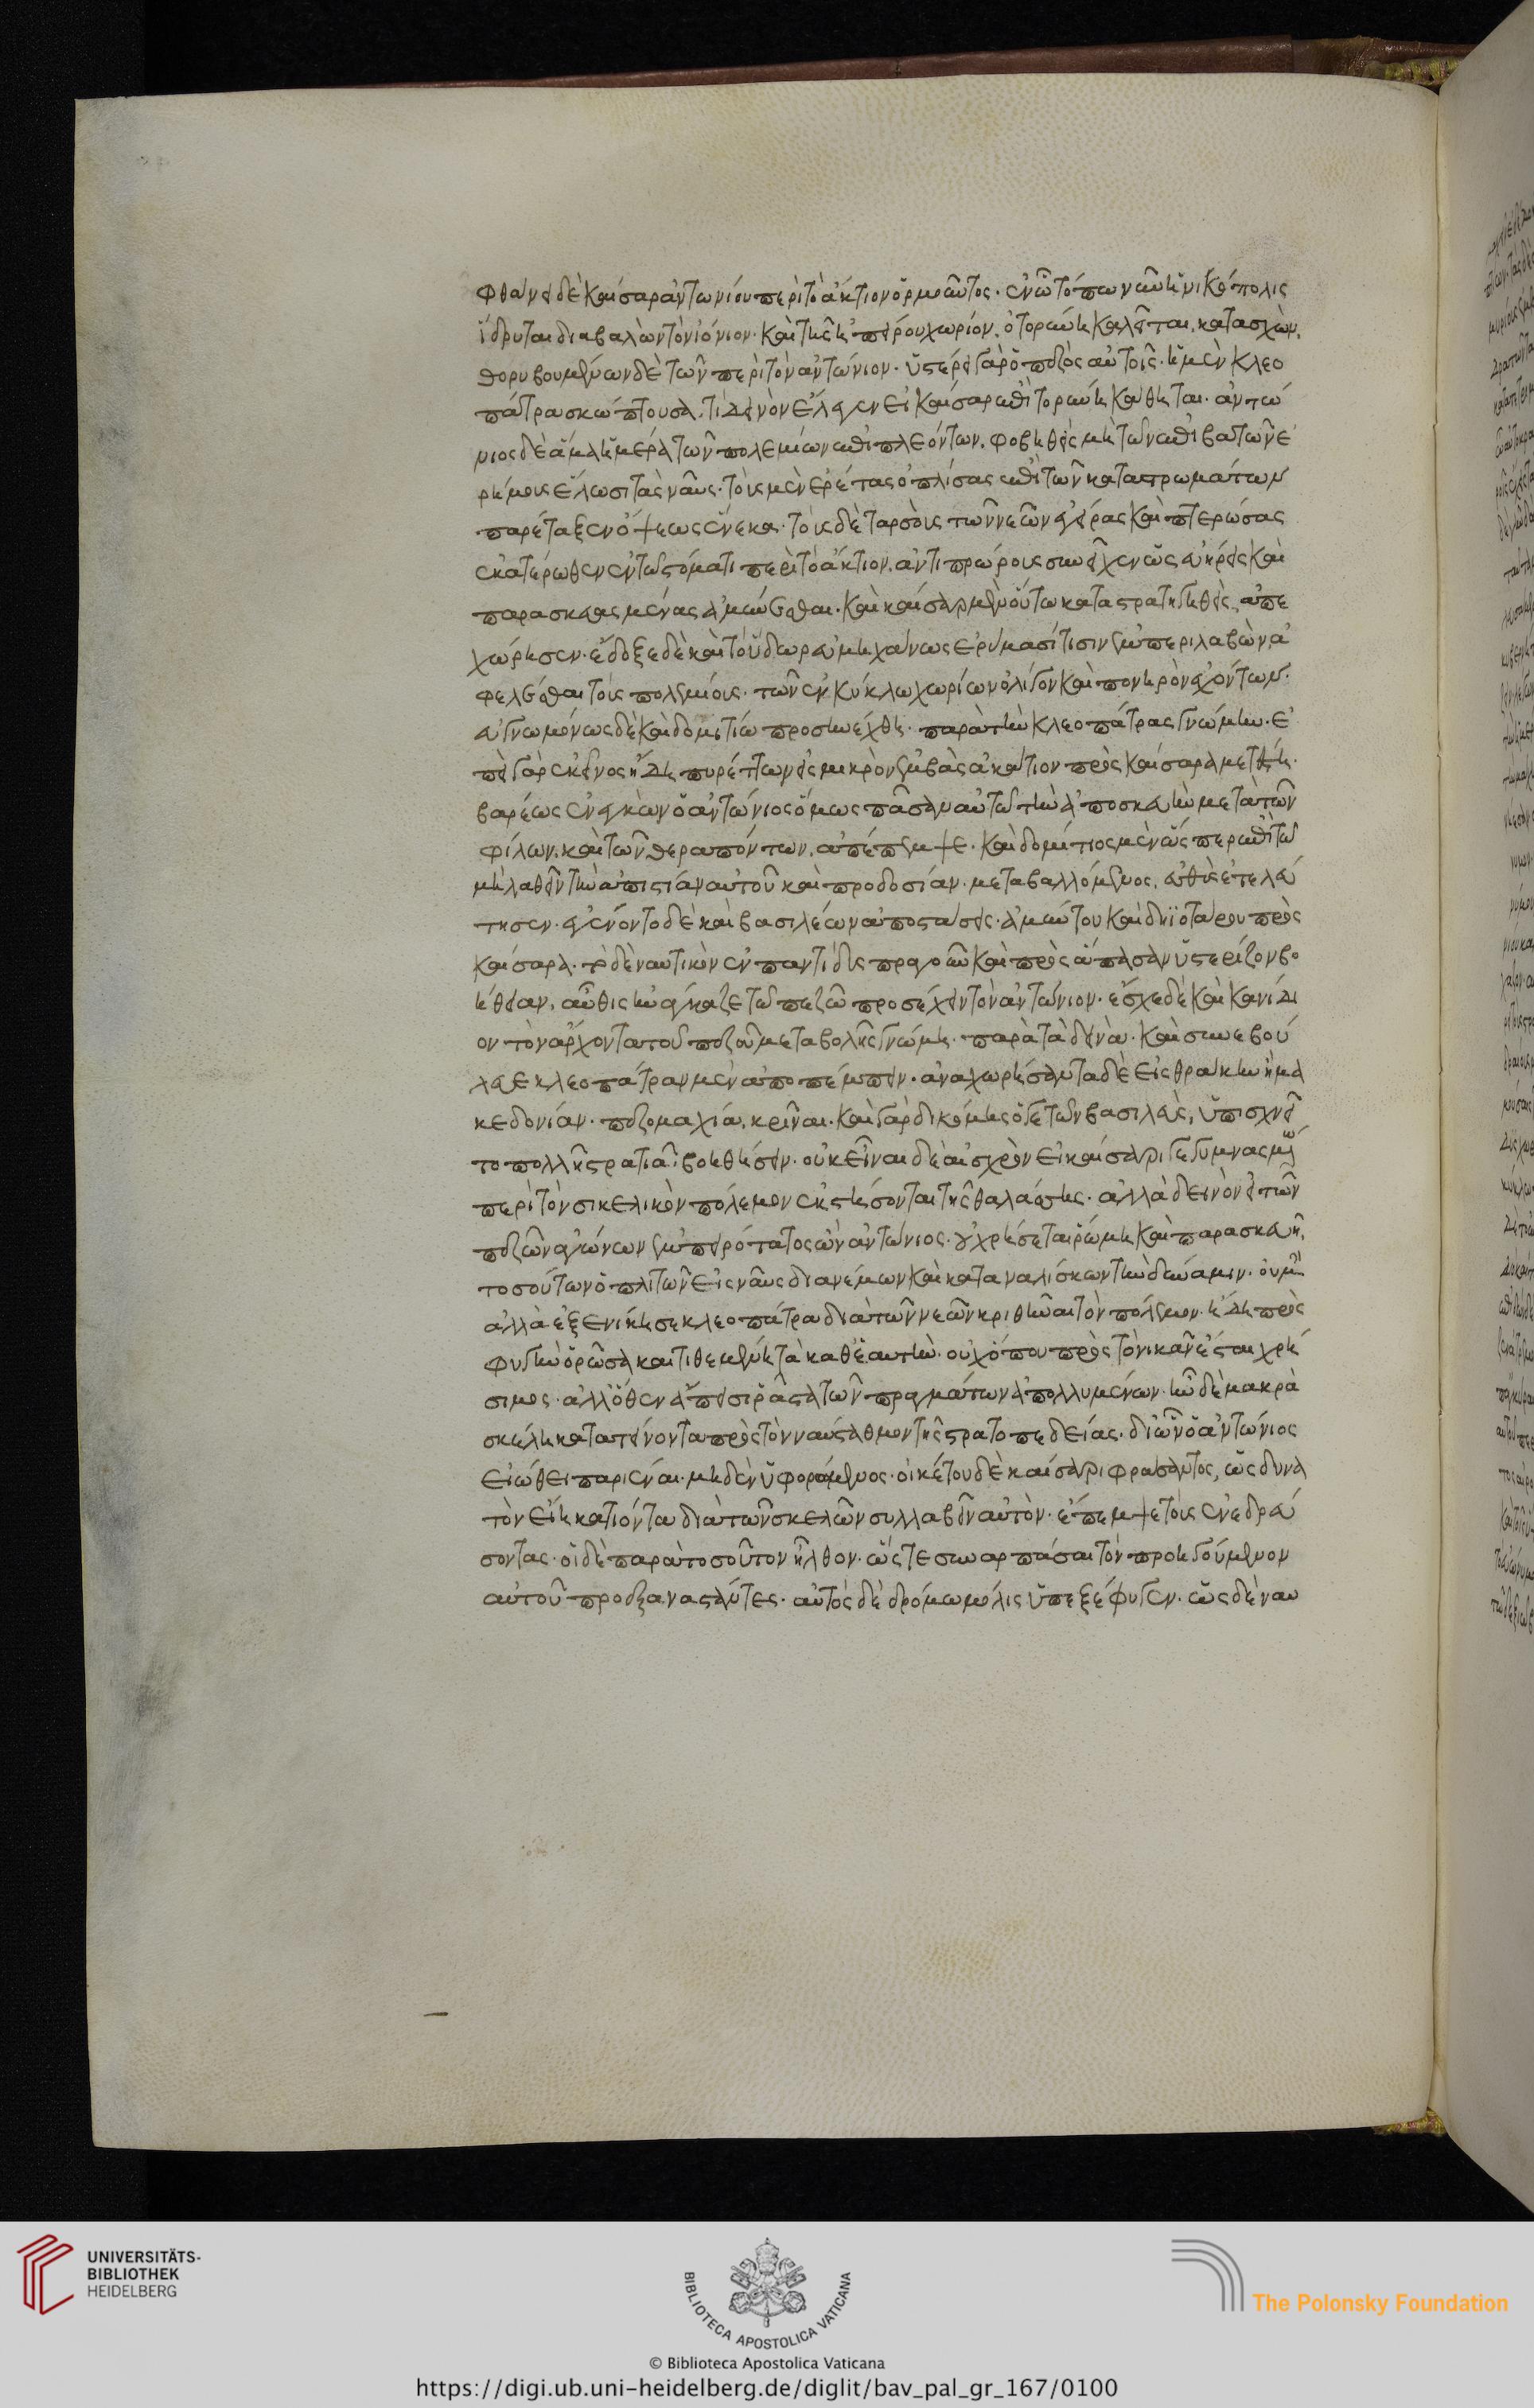 φθάνει δὲ καῖσαρ ἀντωνίου περὶ τὸ ἄκτιον ὁρμοῦντος. ἐν ὧ τόπω νῦν ἡ νικόπολις
ἵδρυται διαβαλὼν τὸν ἰόνιον. καὶ τῆς ἠπείρου χωρίον, ὁ τορύνη καλεῖται, κατασχών.
θορυβουμένων δὲ τῶν περὶ τὸν ἀντώνιον. ὑστέρει γὰρ ὁ πεζὸς αὐτοῖς. ἡ μὲν κλεο
πάτρα σκώπτουσα, τί δεινὸν ἔλεγεν εἰ καῖσαρ ἐπὶ τορύνη κάθηται. ἀντώ
νιος δὲ ἅμα ἡμέρα τῶν πολεμίων ἐπιπλεόντων. φοβηθεὶς μὴ τῶν ἐπιβατῶν ἐ
ρήμοις ἕλωσι τὰς ναῦς. τοὺς μὲν ἐρέτας ὁπλίσας ἐπὶ τῶν καταστρωμάτων
παρέταξεν ὄψεως ἕνεκα. τοὺς δὲ ταρσοὺς τῶν νεῶν ἐγείρας καὶ πτερώσας
ἑκατέρωθεν ἐν τῶ στόματι περὶ τὸ ἄκτιον. ἀντιπρώρους συνεῖχεν ὡς εὐήρεις καὶ
παρασκευασμένας ἀμύνεσθαι. καὶ καῖσαρ μὲν οὕτω καταστρατηγηθεὶς, ἀπε
χώρησεν. ἔδοξε δὲ καὶ τὸ ὕδωρ εὐμηχάνως ἐρύμασί τισιν ἐμπεριλαβὼν ἀ
φελέσθαι τοὺς πολεμίους. τῶν ἐν κύκλω χωρίων ὀλίγον καὶ πονηρὸν ἐχόντων.
εὐγνωμόνως δὲ καὶ δομιτίω προσηνέχθη. παρὰ τὴν κλεοπάτρας γνώμην. ἐ
πεὶ γὰρ ἐκεῖνος ἤδη πυρέττων εἰς μικρὸν ἐμβὰς ἀκάτιον πρὸς καίσαρα μετέστη.
βαρέως ἐνεγκὼν ὁ ἀντώνιος ὅμως πᾶσαν αὐτῶ τὴν ἀποσκευὴν μετὰ τῶν
φίλων. καὶ τῶν θεραπόντων, ἀπέπεμψε. καὶ δομίτιος μὲν ὥσπερ ἐπὶ τῶ
μὴ λαθεῖν τὴν ἀπιστίαν αὐτοῦ καὶ προδοσίαν. μεταβαλλόμενος, εὐθὺς ἐτελεύ
τησεν. ἐγένοντο δὲ καὶ βασιλέων ἀποστάσεις. ἀμύντου καὶ δηϊοτάρου πρὸς
καίσαρα. τὸ δὲ ναυτικὸν ἐν παντὶ δυσπραγοῦν καὶ πρὸς ἅπασαν ὑστερίζον βο
ήθειαν, αὖθις ἠνάγκαζε τῶ πεζῶ προσέχειν τὸν ἀντώνιον. ἔσχε δὲ καὶ κανίδι
ον τὸν ἄρχοντα τοῦ πεζοῦ μεταβολῆς γνώμη. παρὰ τὰ δεινὰ. καὶ συνεβού
λευε κλεοπάτραν μὲν ἀποπέμπειν. ἀναχωρήσαντα δὲ εἰς θράκην ἢ μα
κεδονίαν. πεζομαχία, κρῖναι. καὶ γὰρ δικόμης ὁ γετῶν βασιλεὺς, ὑπισχνεῖ
το πολλῆ στρατιᾶ βοηθήσειν. οὐκ εἶναι δὲ αἰσχρὸν εἰ καίσαρι γεγυμνασμένω
περὶ τὸν σικελικὸν πόλεμον ἐκστήσονται τῆς θαλάσσης. ἀλλὰ δεινὸν εἰ τῶν
πεζῶν ἀγώνων ἐμπειρότατος ὢν ἀντώνιος. οὐ χρήσεται ῥώμη καὶ παρασκευῆ,
τοσούτων ὁπλιτῶν εἰς ναῦς διανέμων καὶ καταναλίσκων τὴν δύναμιν. οὐ μὴν
ἀλλὰ ἐξενίκησε κλεοπάτρα διὰ τῶν νεῶν κριθῆναι τὸν πόλεμον. ἤδη πρὸς
φυγὴν ὁρῶσα καὶ τιθεμένη τὰ καθ' ἑαυτὴν. οὐχ ὅπου πρὸς τὸ νικᾶν ἔσται χρή
σιμος. ἀλλ' ὅθεν ἄπεισι ῥᾷστα τῶν πραγμάτων ἀπολλυμένων. ἦν δὲ μακρὰ
σκέλη κατατείνοντα πρὸς τὸν ναύσταθμον τῆς στρατοπεδείας. δι' ὧν ὁ ἀντώνιος
εἰώθει παριέναι. μηδὲν ὑφορώμενος. οἰκέτου δὲ καίσαρι φράσαντος, ὡς δυνα
τὸν εἴη κατιόντα διὰ τῶν σκελῶν συλλαβεῖν αὐτὸν. ἔπεμψε τοὺς ἐνεδρεύ
σοντας. οἱ δὲ παρὰ τοσοῦτον ἦλθον. ὥστε συναρπάσαι τὸν προηγούμενον
αὐτοῦ προεξαναστάντες. αὐτὸς δὲ δρόμω μόλις ὑπεξέφυγεν. ὡς δὲ ναυ
UNIVERSITÄTS-
BIBLIOTHEK
HEIDELBERG
BIBLIOTECA APOSTOLICA VATICANA
The Polonsky Foundation
© Biblioteca Apostolica Vaticana
https://digi.ub.uni-heidelberg.de/diglit/bav_pal_gr_167/0100